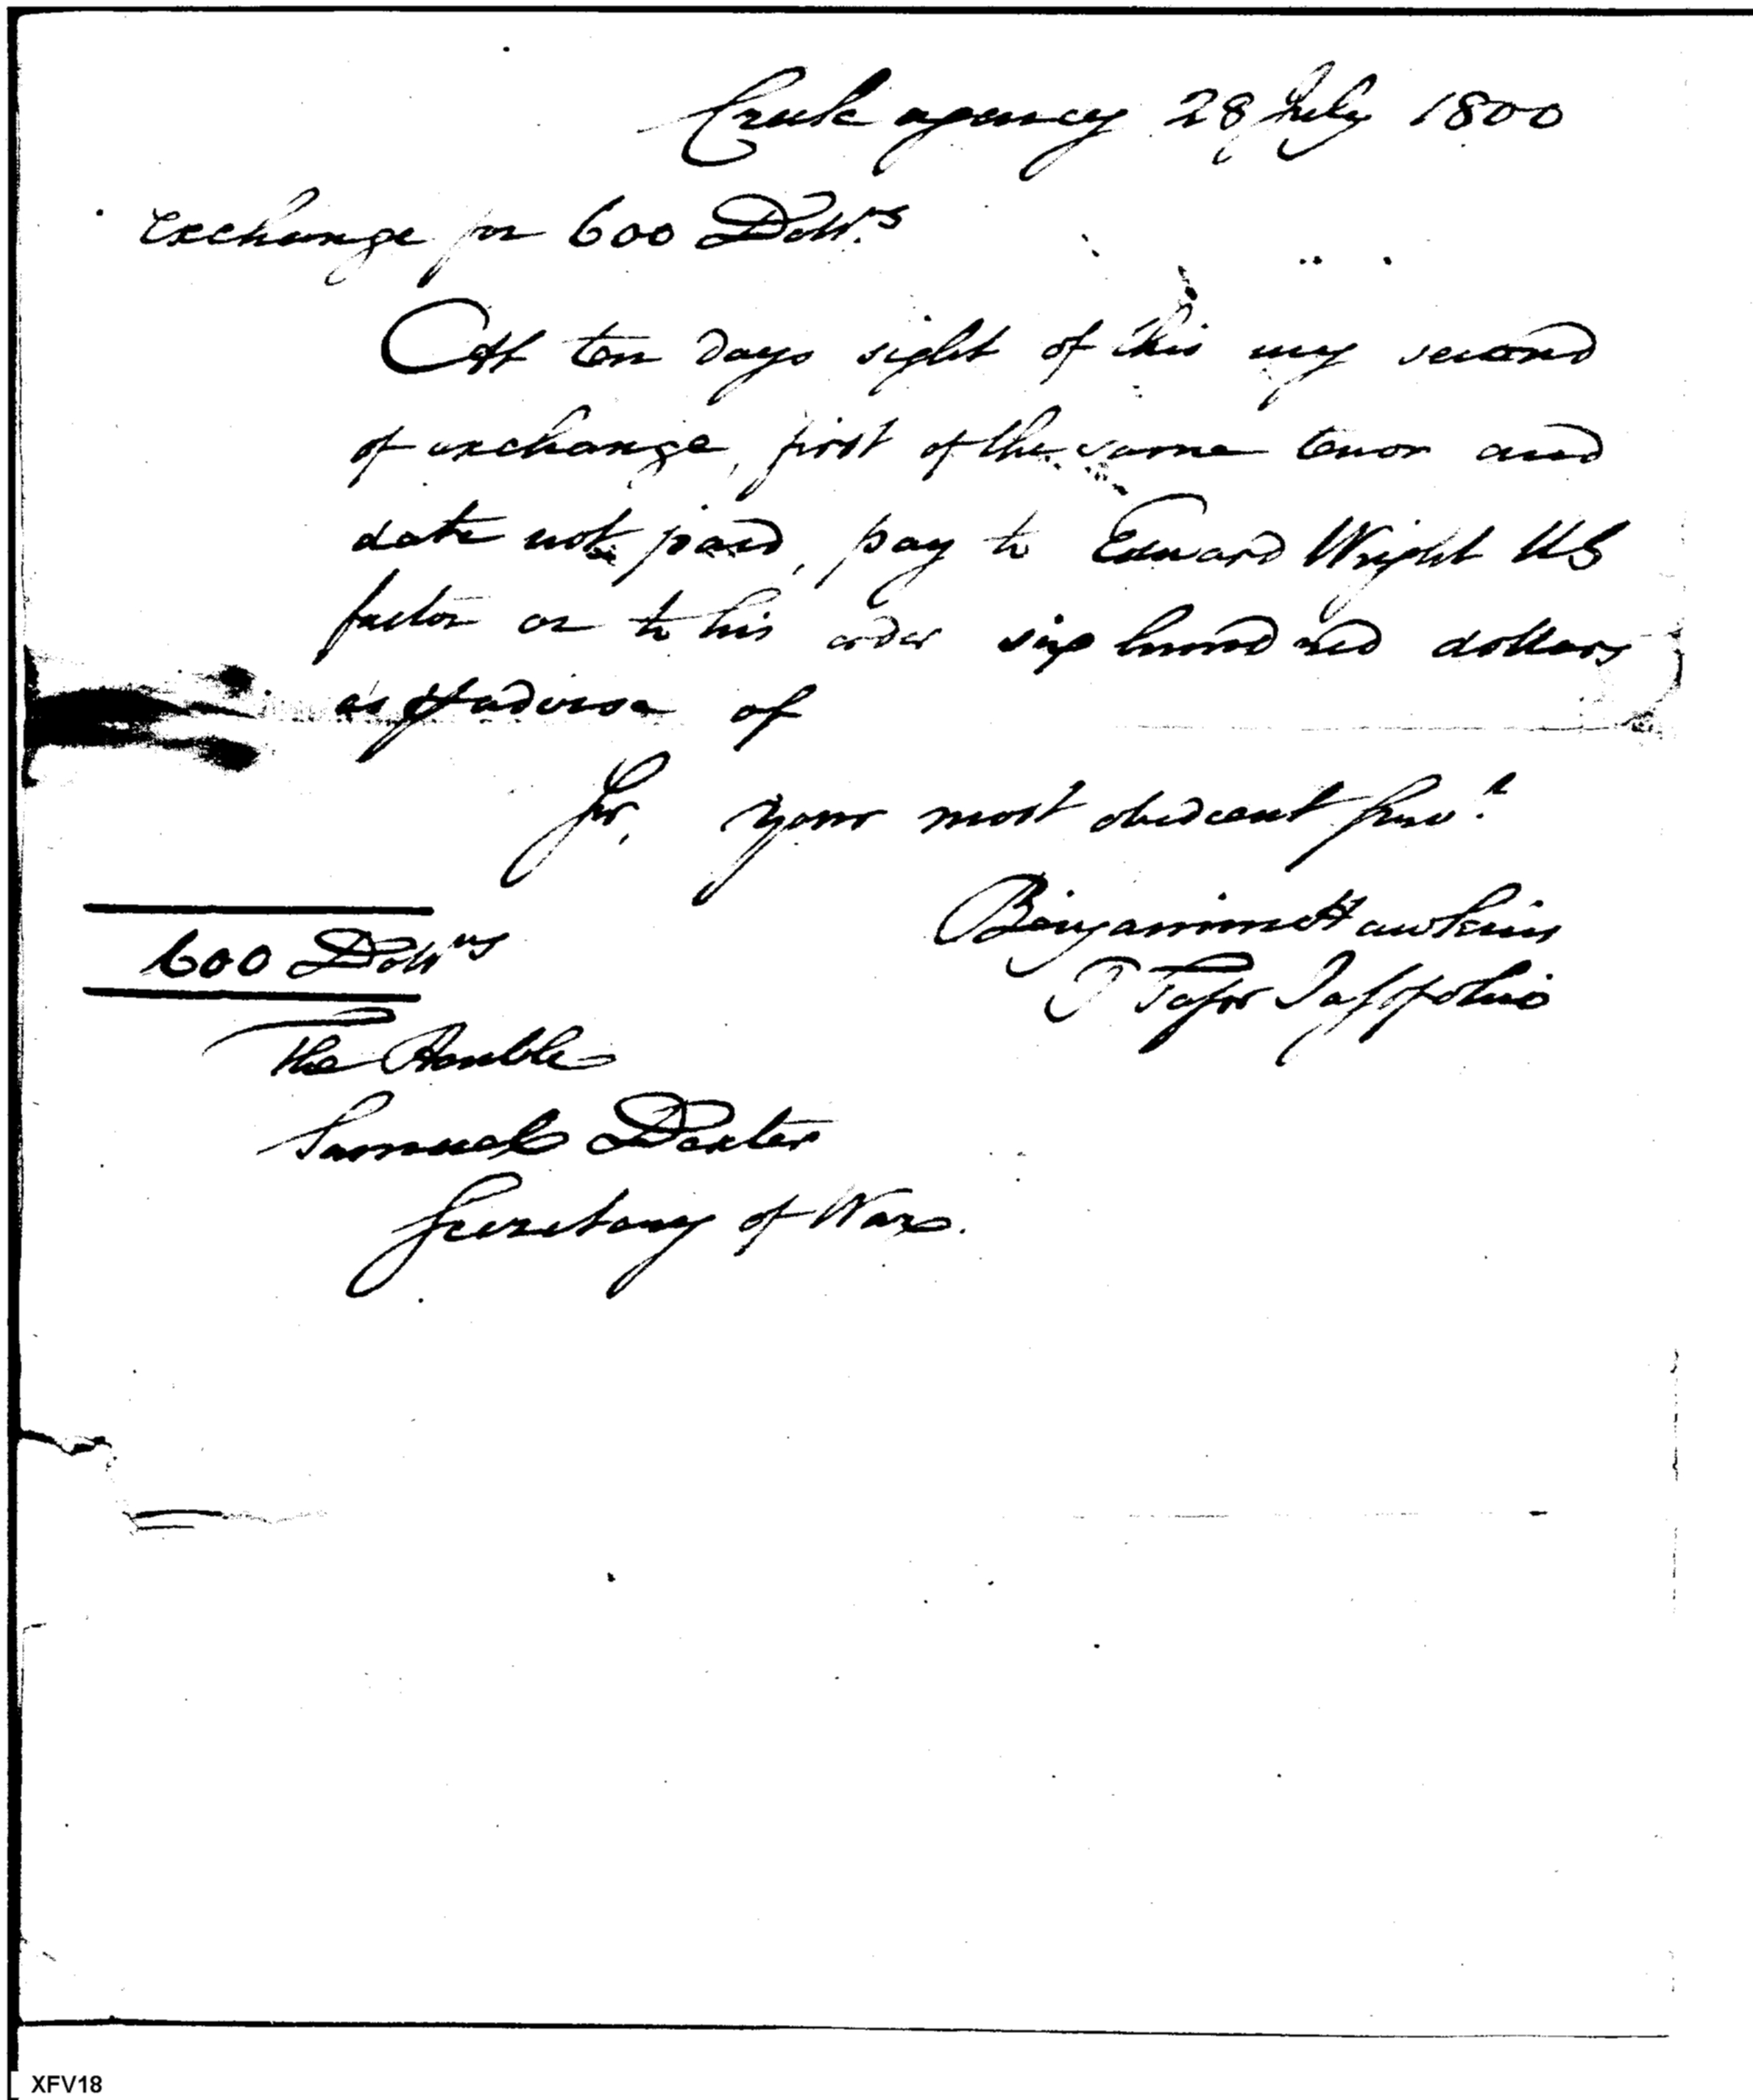 Creek agency 28 July 1800
Exchange for 600 Dollrs
At ten days sight of this my second
of exchange, first of the same tenor and
date not paid, pay to Edward Wright US
factor or to his order six hundred dollars
as pr advice of
Sir, your most obedient servt
Benjamin Hawkins
600 Dollrs
The Honble
Samuel Dexter
Secretary of War.
XFV18